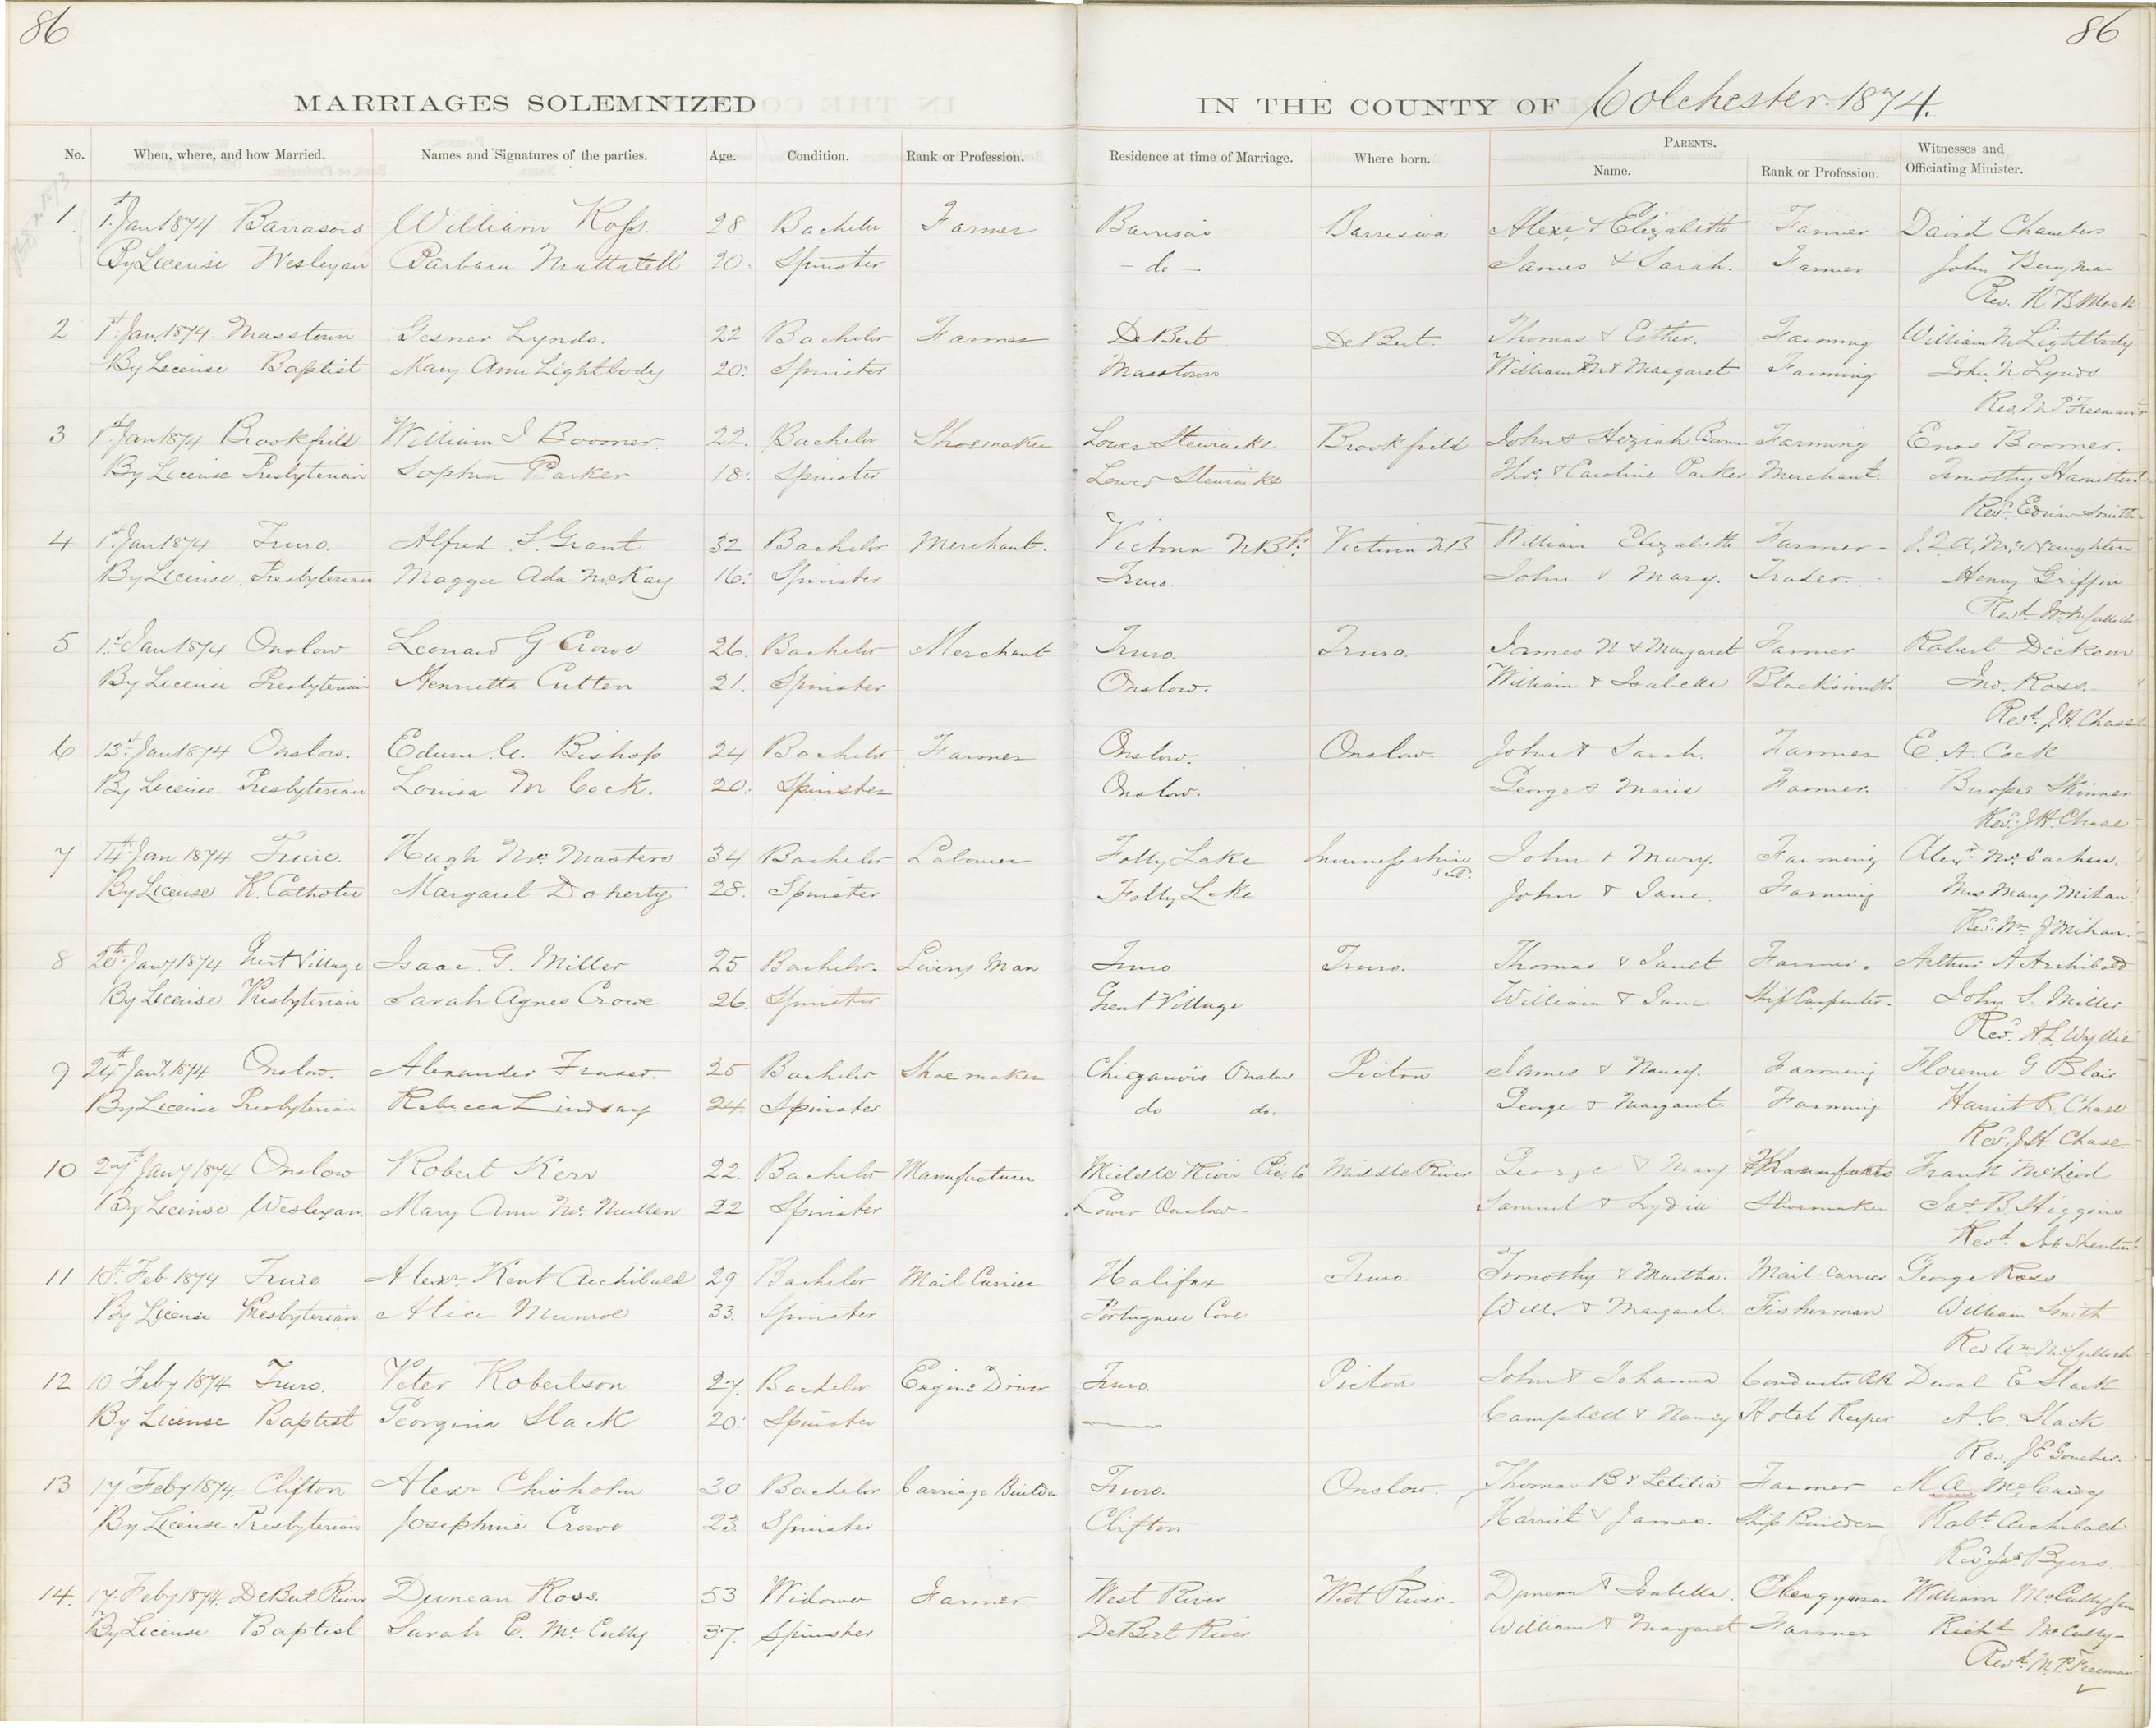 86 86
MARRIAGES SOLEMNIZED IN THE COUNTY OF Colchester 1874.
No. When, where, and how Married. Names and Signatures of the parties. Age. Condition. Rank or Profession. Residence at time of Marriage. Where born. PARENTS. Name. Rank or Profession. Witnesses and Officiating Minister.
1. 1st Jan 1874 Barrasois William Ross. 28 Bachelor Farmer Barrisois Alexr & Elizabeth Farmer David Chambers
By License Wesleyan Barbara Mattatall 20. Spinster - do - James & Sarah. Farmer John
Rev. R B Mack
2 1st Jan 1874. Masstown Gesner Lynds. 22 Bachelor Farmer DeBert DeBert. Thomas & Esther. Farming William M Lightbody
By License Baptist Mary Ann Lightbody 20. Spinster Masstown William M & Margaret Farming John N. Lynds
Rev. M P Freeman
3 1st Jan 1874 Brookfield William J Boomer. 22. Bachelor Shoemaker Lower Stewiacke Brookfield John & Farming Enos Boomer.
By License Presbyterian Sophia Parker 18. Spinster Lower Stewiacke Thos. & Caroline Parker Merchant. Timothy
Revd. Edwin Smith
4 1st Jan 1874 Truro. Alfred S. Grant 32 Bachelor Merchant. Victoria N.B. Victoria N B William Elizabeth Farmer
By License. Presbyterian Maggie Ada McKay 16. Spinster Truro. John & Mary. Trader. Henry Griffin
Revd. Wm McCulloch
5 1st Jan 1874 Onslow Leonard G Crowe 26. Bachelor Merchant Truro. Truro. James N & Margaret. Farmer Robert Dickson
By License Presbyterian Henrietta Cutten 21. Spinster Onslow. William & Isabella Blacksmith Jno. Ross.
Revd. J.H. Chase
6 13th Jan 1874 Onslow. Edwin C. Bishop 24 Bachelor Farmer Onslow. Onslow. John & Sarah. Farmer E. A. Cock
By License Presbyterian Louisa M Cock. 20. Spinster Onslow. George & Maria Farmer. Burpee Skinner
Revd. J.H. Chase
7 14th Jan 1874 Truro. Hugh Mc Masters 34 Bachelor Labourer Folly Lake Invernessshire Scot. John & Mary. Farming Alexr. McEachen.
By License R. Catholic Margaret Doherty 28. Spinster Folly Lake John & Jane. Farming Mrs Mary Mihan.
Revd. Wm J Mihan.
8 20th Jany 1874 Great Village Isaac G. Miller 25 Bachelor. Livery Man Truro Truro. Thomas & Janet Farmer. Arthur A Archibald
By License Presbyterian Sarah Agnes Crowe 26. Spinster Great Village William & Jane Ship Carpenter. John S. Miller
Revd. A L Wyllie
9 24th Jany. 1874 Onslow. Alexander Fraser. 25 Bachelor Shoemaker Chiganois Onslow Pictou James & Nancy. Farming Florence G Blair
By License Presbyterian Rebecca Lindsay 24 Spinster do do. George & Margaret. Farming Harriet R. Chase
Revd. J H Chase
10 27th Jany 1874 Onslow Robert Kerr 22. Bachelor Manufacturer Middle River Pic. Co Middle River George & Mary Frank McLeod
By License Wesleyan. Mary Ann Mc Mullen 22 Spinster Lower Onslow. Samuel & Lydia Shoemaker Jas. B. Higgins
Revd. Job Shenton
11 10th. Feb 1874 Truro Alexr. Kent Archibald 29 Bachelor Mail Carrier Halifax Truro. Timothy & Martha. Mail Carrier George Ross
By License Presbyterian Alice Munroe 33. Spinster Portuguese Cove Will. & Margaret. Fisherman William Smith
Rev Wm McCulloch
12 10 Feby 1874 Truro. Peter Robertson 27. Bachelor Engine Driver Truro. Pictou John & Johanna Conductor RR Duval E Slack
By License Baptist Georgina Slack 20. Spinster Campbell & Nancy Hotel Keeper A. C. Slack
Rev. J E Goucher.
13 17 Feby 1874. Clifton Alexr Chisholm 30 Bachelor Carriage Builder Truro. Onslow. Thomas B & Letitia Farmer M A McCurdy
By License Presbyterian Josephine Crowe 23. Spinster Clifton Harriet & James. Ship Builder Robt. Archibald
Revd Jas Byers
14. 17. Feby 1874. DeBert River Duncan Ross. 53 Widower Farmer. West River West River. Duncan & Isabella. Clergyman William McCully
By License Baptist Sarah E. Mc Cully 37. Spinster DeBert River William & Margaret Farmer Richd. McCully
Revd. M. P. Freeman